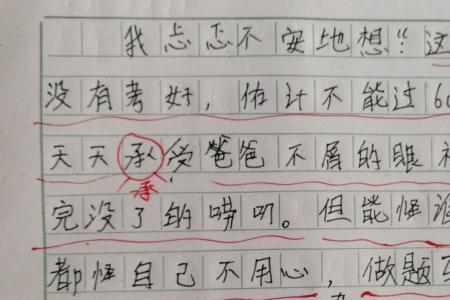 我忐忑不安地想:“这
没有考好，估计不能过60
天天承受爸爸不屑的眼神
承
完没了的唠叨。但能怪谁
都怪自己不用心，做题